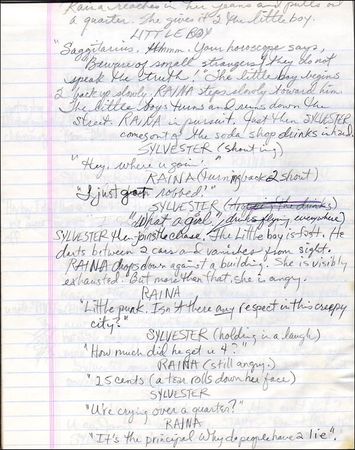 Raina reaches in her jeans and pulls out
a quarter. She gives it 2 the little boy.
LITTLE BOY
"Saggitarius. Hhmmm. Your horoscope says,
Beware of small strangers, they do not
speak the truth!" The little boy begins
2 back up slowly. RAINA steps slowly toward him.
The little boys turns and runs down the
street RAINA in pursuit. Just then SYLVESTER
comes out of the soda shop drinks in hand.
SYLVESTER (shouting)
"Hey, where u goin'."
RAINA (turning back 2 shout)
"I just got robbed!"
SYLVESTER (the drinks)
"What a girl," drinks flying everywhere)
SYLVESTER then joins the chase. The little boy is fast. He
darts between 2 cars and vanishes from sight.
RAINA drops down against a building. She is visibly
exhausted. But more than that she is angry.
RAINA
"Little punk. Isn't there any respect in this creepy
city?"
SYLVESTER (holding in a laugh)
"How much did he get u 4?"
RAINA (still angry.)
"25 cents (a tear rolls down her face)
SYLVESTER
"U're crying over a quarter?"
RAINA
"It's the principal Why do people have 2 lie".